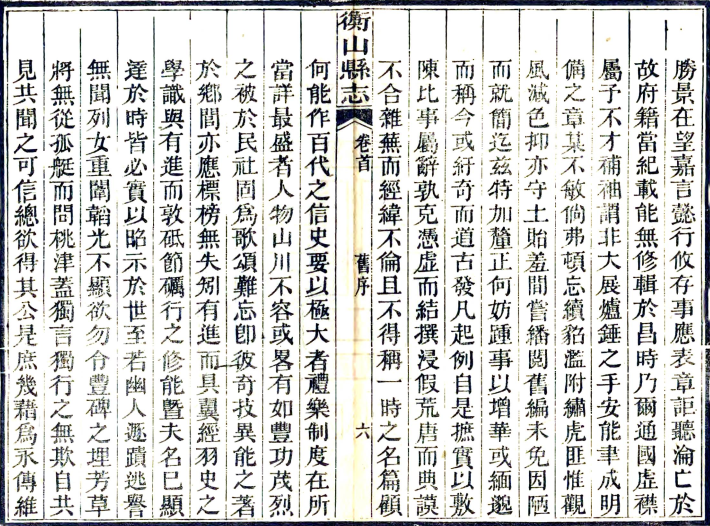 勝景在望嘉言懿行攸存事應表章詎聽淪亡於
故府籍當紀載能無修輯於昌時乃爾通國虛襟
屬予不才補袖謂非大展爐錘之手安能聿成明
備之章某不敏倘弗頓忘續貂濫附繡虎匪惟觀
風減色抑亦守土貽羞間嘗繙閱舊編未免因陋
而就簡迄茲特加釐正何妨踵事以增華或緬邈
而稱今或紆奇而道古發凡起例自是摭實以敷
陳比事屬辭孰克憑虛而結撰浸假荒唐而典謨
不合雜蕪而經緯不倫且不得稱一時之名篇顧
衡山縣志
卷首
舊序
六
何能作百代之信史要以極大者禮樂制度在所
當詳最盛者人物山川不容或畧有如豐功茂烈
之被於民社固爲歌頌難忘卽彼奇技異能之著
於鄉間亦應標榜無失矧有進而具翼經羽史之
學識與有進而敦砥節礪行之修能曁夫名巳顯
達於時皆必實以昭示於世至若幽人遯蹟逃譽
無聞列女重闈韜光不顯欲勿令豐碑之埋芳草
將無從孤艇而問桃津蓋獨言獨行之無欺自共
見共聞之可信總欲得其公是庶幾藉爲永傳維